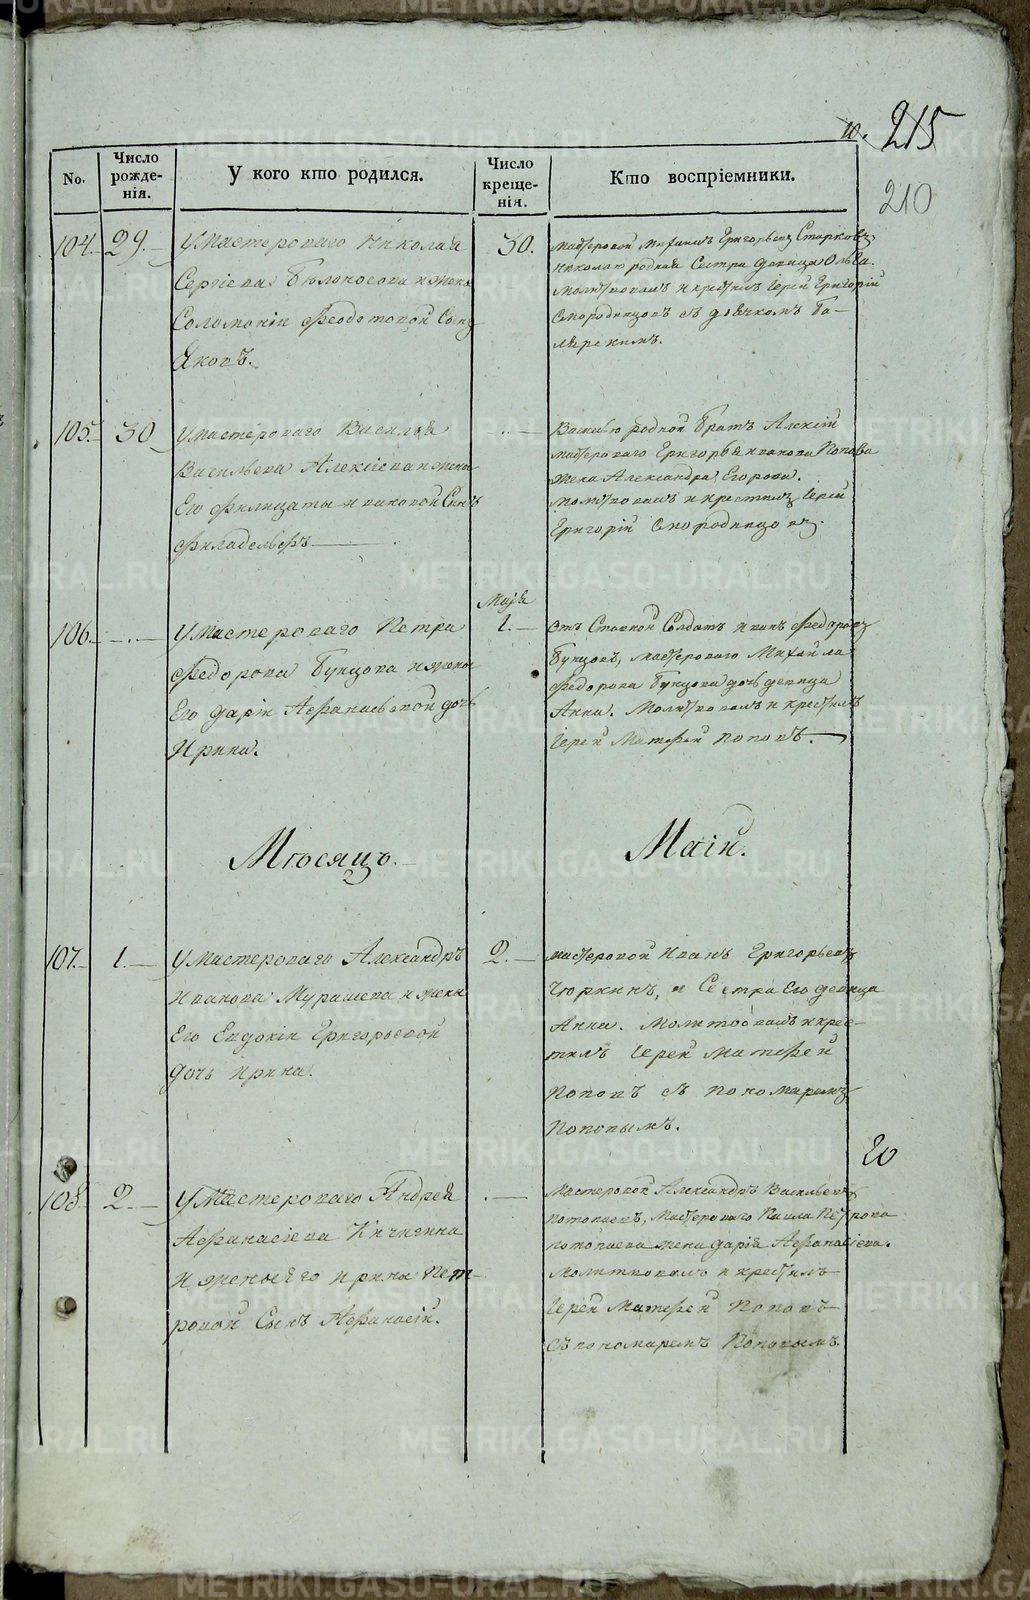 METRIKI.GASO-URAL.RU
10. 215
210
No.
Число рожде-нія.
У кого кто родился.
Число креще-нія.
Кто воспріемники.
104. 29.
У Мастероваго Николая
Сергіева Бѣлоносова и жены
Соломоніи Федотовой Сынъ
Яковъ.
30.
Мастеровой Григорьевъ Старковъ
Николаю родная Сестра девица Ольга.
Молитвовалъ и крестилъ Іерей Григорій
Смородинцовъ съ дьячкомъ
105. 30
У мастероваго Василья
Васильева Алексіева и жены
Его Филицаты Ивановой Сынъ
Филадельфъ
Василью родной братъ Алексій
мастероваго Григорья Иванова Попова
жена Александра Егорова.
Молитвовалъ и крестилъ Іерей
Григорій Смородинцовъ.
106.
У Мастероваго Петра
Федорова Бунцова и жены
Его Даріи Афанасьевой дочь
Ирина.
Маія
1.
Отставной Солдатъ Иванъ Федоровъ
Бунцовъ, мастероваго Михайла
Федорова Бунцова дочь девица
Анна. Молитвовалъ и крестилъ
Іерей Матфей Поповъ.
Мѣсяцъ.
Маій.
107. 1.
У Мастероваго Александръ
Иванова Мурашева и жены
Его Евдокіи Григорьевой
дочь Ирина.
2.
мастеровой Иванъ Григорьевъ
Чюркинъ, и Сестра Его девица
Анна. Молитвовалъ и крес-
тилъ Іерей Матфей
Поповъ съ пономаремъ
Поповымъ.
20
108. 2.
У Мастероваго Андрея
Афанасіева Кичигина
и жены Его Ирины Пет-
ровой Сынъ Афанасій.
Мастеровой Александръ Васильевъ
Потопаевъ, Мастероваго Павла Петрова
Потопаева жена Дарія Афанасіева.
Молитвовалъ и крестилъ
Іерей Матфей Поповъ
съ пономаремъ Поповымъ.